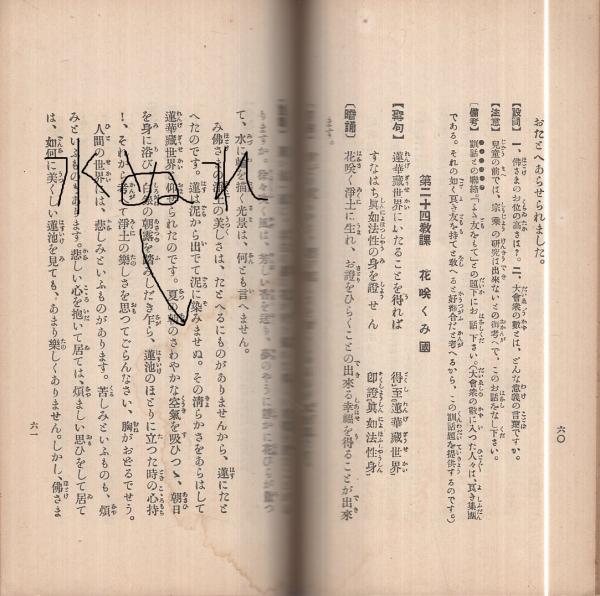 おたとへあらせられました。
【設問】 一、佛さまのお位の高さは？ 二、大會衆の數とは、どんな意義の言葉ですか。
【注意】 兒童の前では、宗乘の研究は出來ないとの御考へで、このお話をなし下さい。
【備考】 訓話との聯絡『よき友をもて』との題下にお話下さい。〈大會衆の數に入つた人々は、眞き集團
である。それの如く眞き友を持てと敎へると好都合だと考へるから、この訓話題を提供するのです。〉
第二十四敎課 花咲くみ國
【聖句】 蓮華藏世界にいたることを得れば 得至蓮華藏世界
すなはち眞如法性の身を證せん 即證眞如法性身
【暗誦】 花咲く淨土に生れ、お證をひらくことの出來る幸福を得ることが出來
ます。
六〇
て、水に を描く光景は、何とも言へません。
み佛さまの淨土の美しさは、たとへるにものがありませんから、蓮にたと
へたのです。蓮は泥から出でて泥に染みませぬ。その淸らかさをあらはして
蓮華藏世界と仰せられたのです。夏の朝のさわやかな空氣を吸ひつゝ、朝日
を身に浴び、白銀の朝露を踏みしだき乍ら、蓮池のほとりに立つた時の心持
！、それから考へて淨土の樂しさを思つてごらんなさい、胸がおどるでせう。
人間の世界には、悲しみといふものがあります。苦しみといふものも、煩
みといふものもあります。悲しい心を抱いて居ては、煩ましい思ひをして居て
は、如何に美くしい蓮池を見ても、あまり樂しくありません。しかし、佛さま
六一